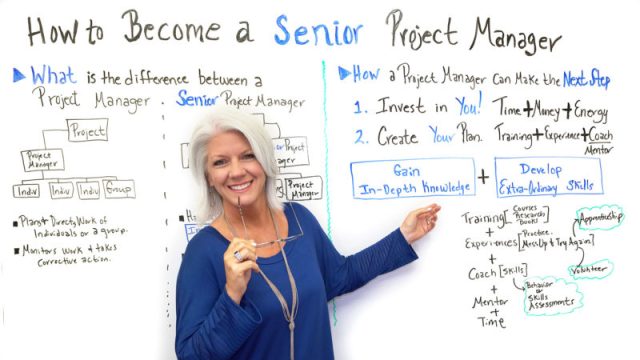 How to Become a Senior Project Manager
What is the difference between a
Project Manager. Senior Project Manager
Project
Project
Manager
Indiv Indiv Indiv Group
Manager
Project
Manager
Plans + Directs Work of
Individuals or a group.
Monitors Work & takes
Corrective action.
How a Project Manager Can Make the Next Step
1. Invest in You! Time + Money + Energy
2. Create Your Plan. Training + Experience + Coach
Mentor
Gain
In-Depth Knowledge
+
Develop
Extra-Ordinary Skills
Training [Courses
Research
Books]
+
Experiences [Practice
Mess Up & Try Again]
Apprenticeship
Volunteer
+
Coach [Skills]
Behavior
or
Skills
Assessments
+
Mentor
+
Time